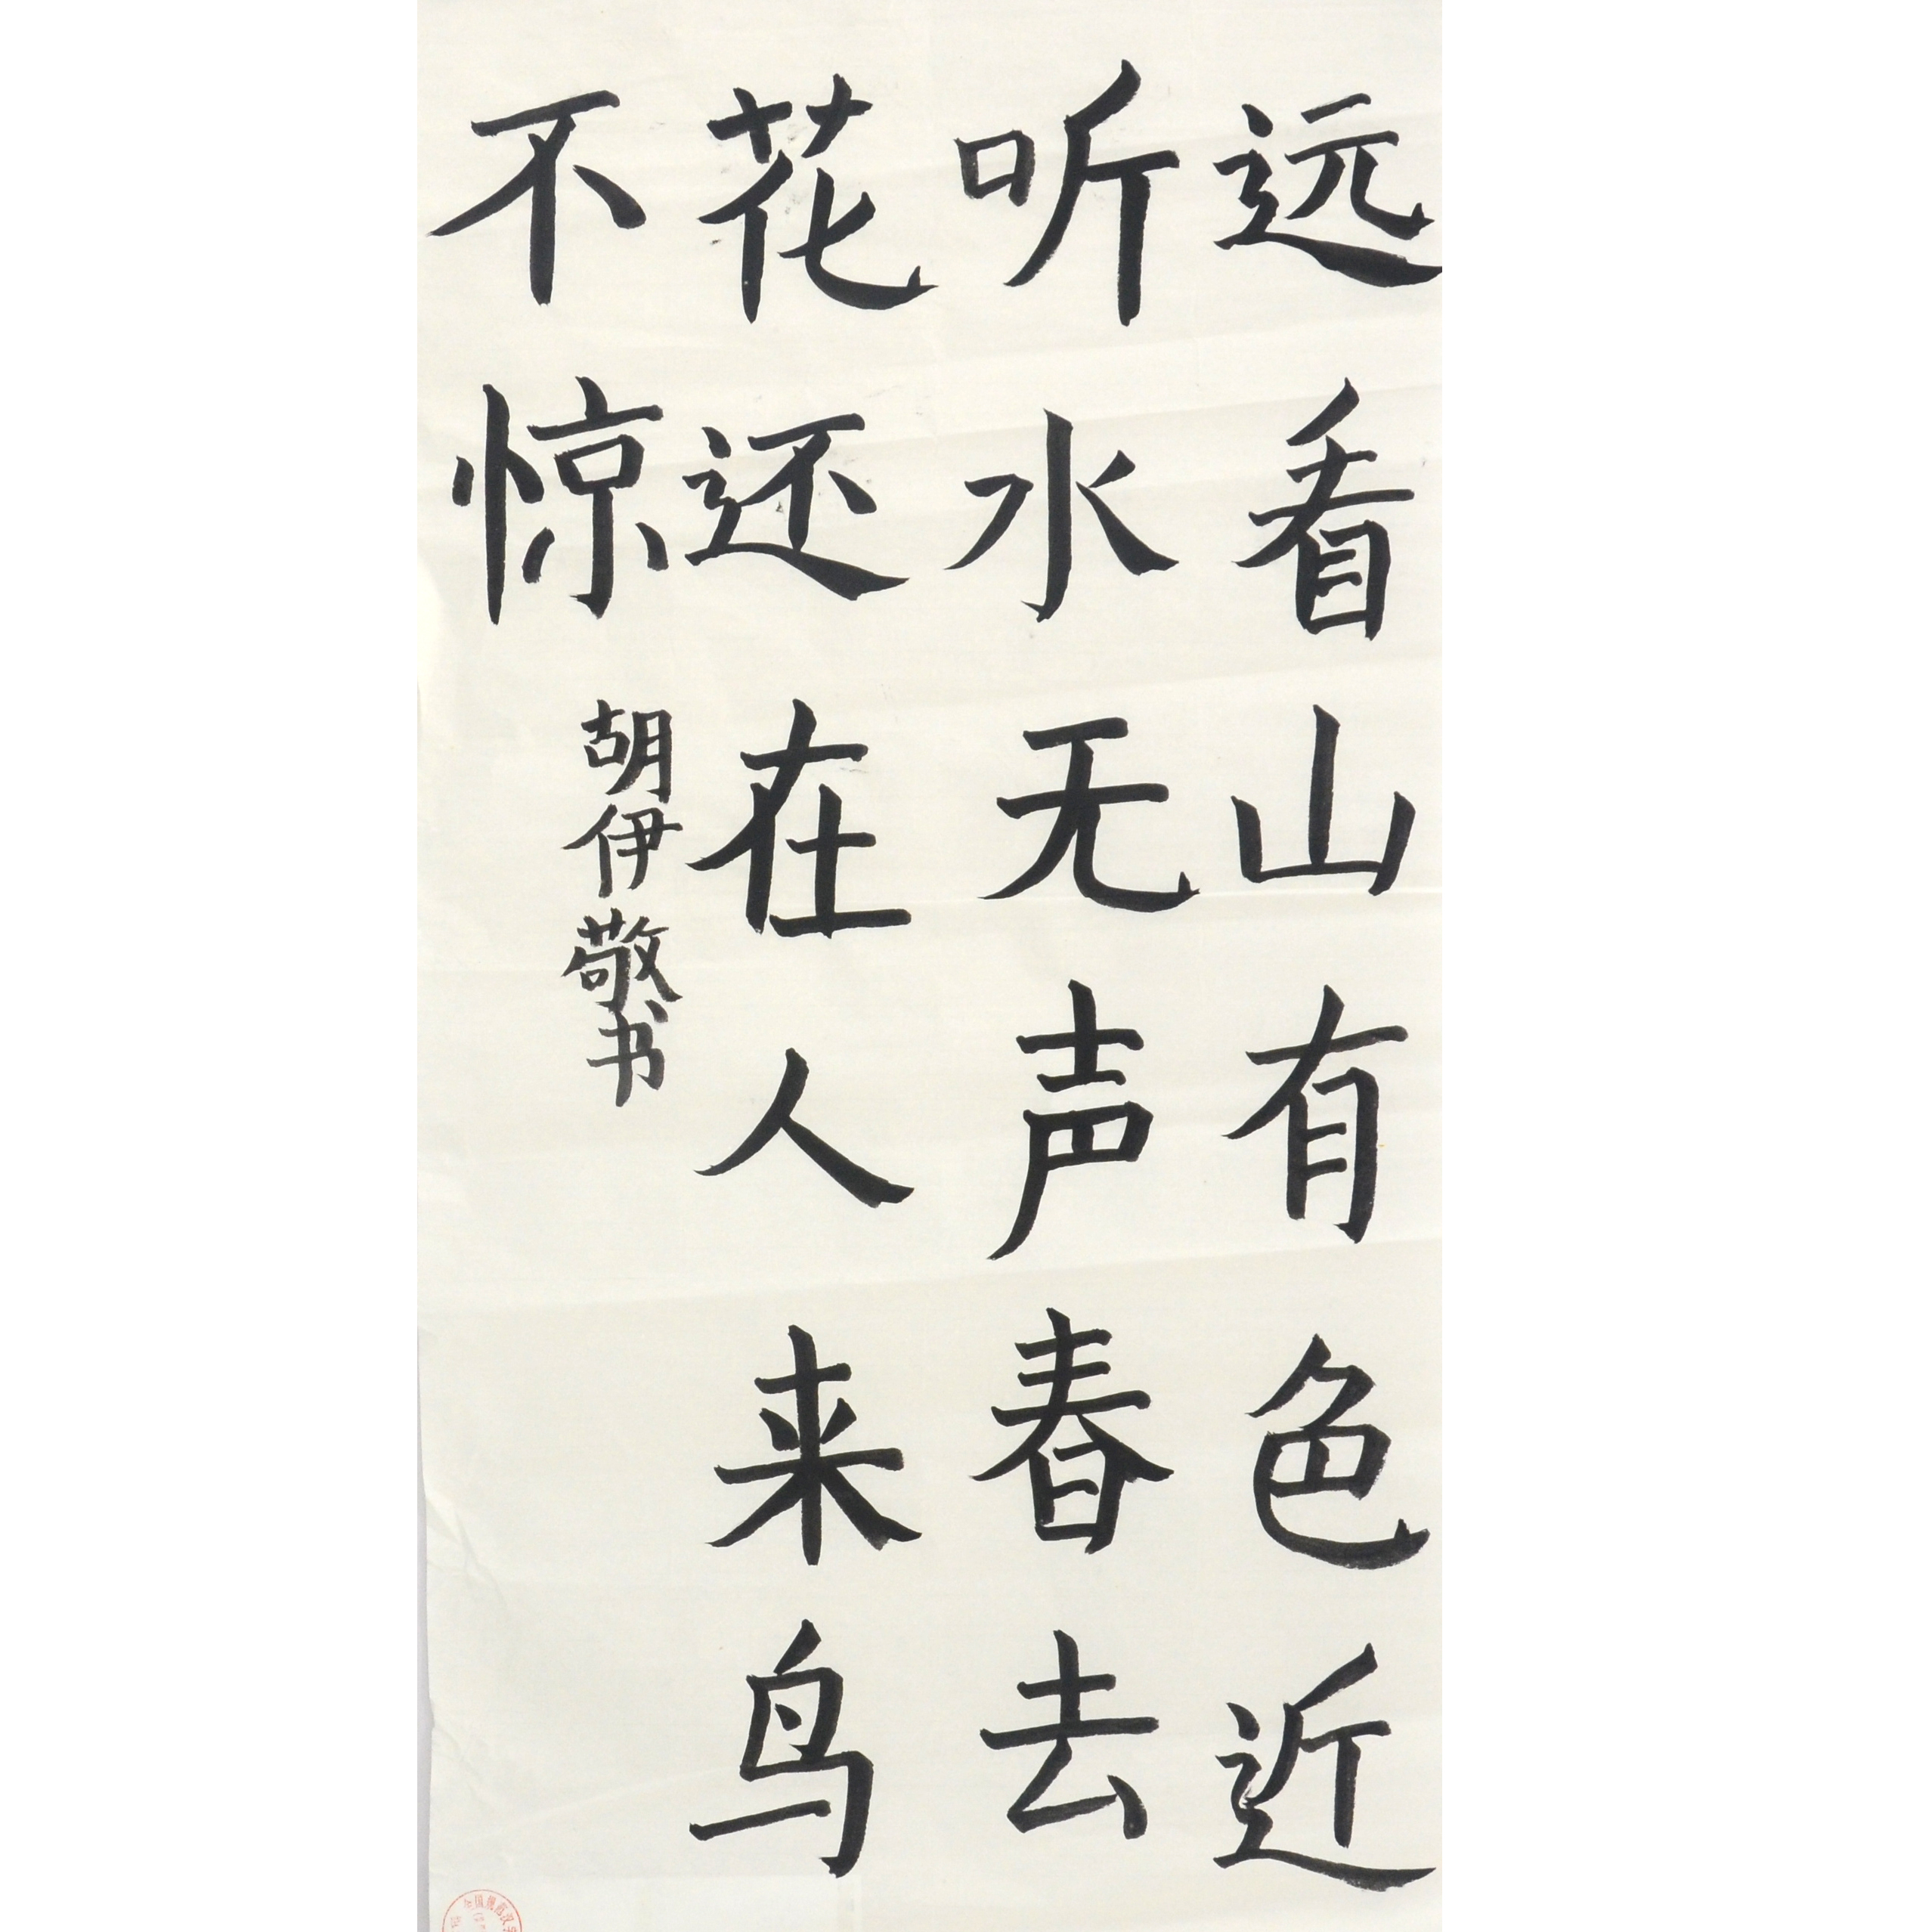 远看山有色近
听水无声春去
花还在人来鸟
不惊
胡伊敬书